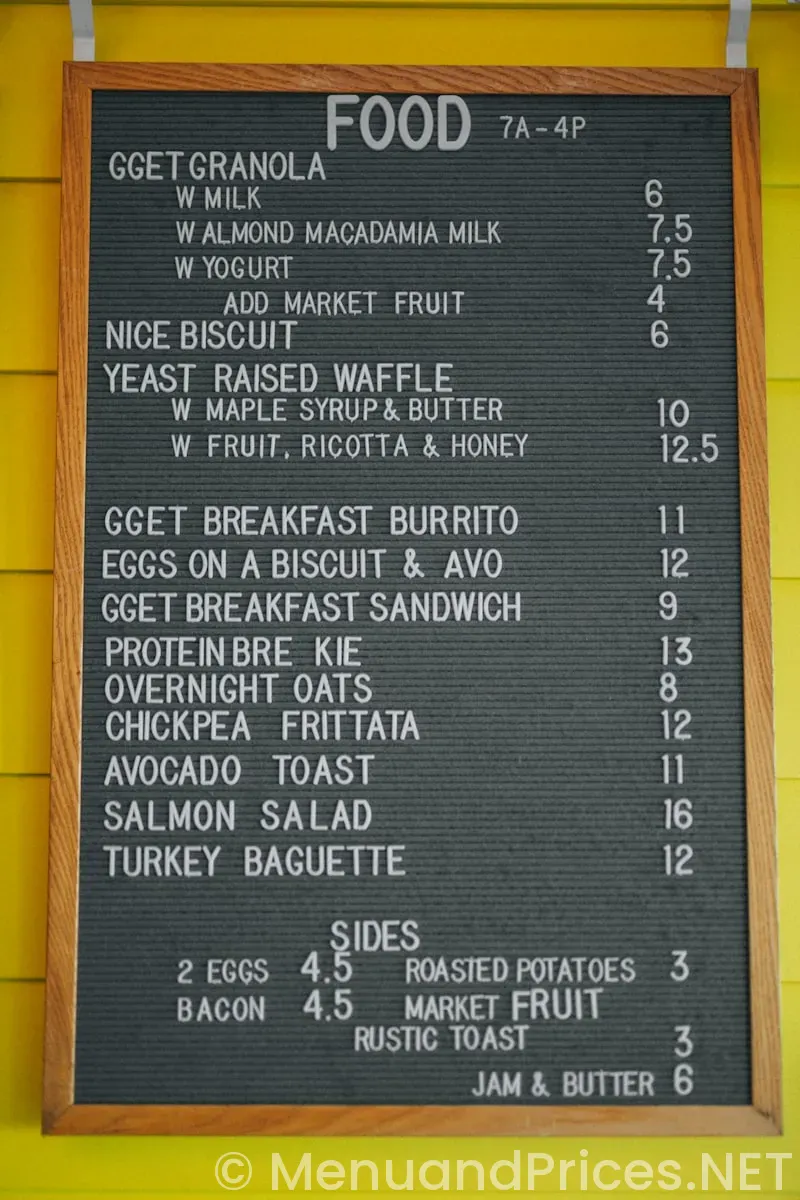 FOOD 7A-4P
GGET GRANOLA
W MILK 6
W ALMOND MACADAMIA MILK 7.5
W YOGURT 7.5
ADD MARKET FRUIT 4
NICE BISCUIT 6
YEAST RAISED WAFFLE
W MAPLE SYRUP & BUTTER 10
W FRUIT, RICOTTA & HONEY 12.5
GGET BREAKFAST BURRITO 11
EGGS ON A BISCUIT & AVO 12
GGET BREAKFAST SANDWICH 9
PROTEIN BRE KIE 13
OVERNIGHT OATS 8
CHICKPEA FRITTATA 12
AVOCADO TOAST 11
SALMON SALAD 16
TURKEY BAGUETTE 12
SIDES
2 EGGS 4.5 ROASTED POTATOES 3
BACON 4.5 MARKET FRUIT
RUSTIC TOAST 3
JAM & BUTTER 6
© MenuandPrices.NET